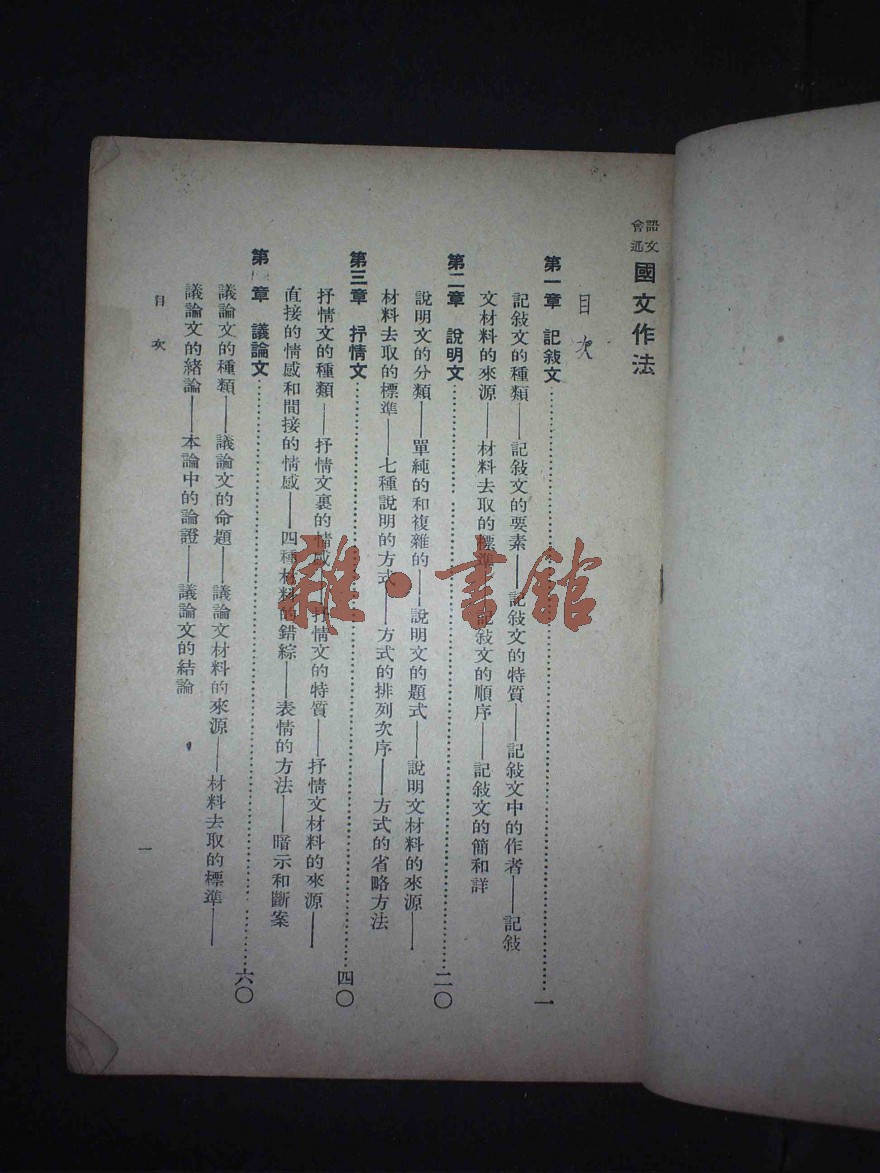 語文
會通
國文作法
目次
第一章 記敍文……一
記敍文的種類——記敍文的要素——記敍文的特質——記敍文中的作者——記敍
文材料的來源——材料去取的標準——記敍文的順序——記敍文的簡和詳
第二章 說明文……二〇
說明文的分類——單純的和複雜的——說明文的題式——說明文材料的來源——
材料去取的標準——七種說明的方式——方式的排列次序——方式的省略方法
第三章 抒情文……四〇
抒情文的種類——抒情文裏的情感——抒情文的特質——抒情文材料的來源——
直接的情感和間接的情感——四種材料的錯綜——表情的方法——暗示和斷案
第 章 議論文……六〇
議論文的種類——議論文的命題——議論文材料的來源——材料去取的標準——
議論文的緒論——本論中的論證——議論文的結論
目次
一
雜·書館